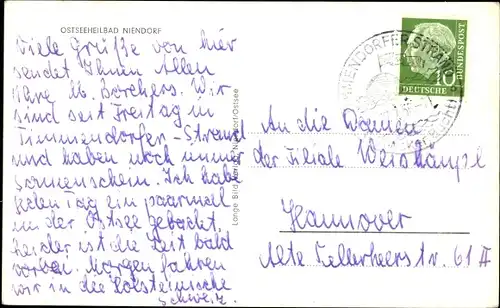 OSTSEEHEILBAD NIENDORF
Viele Grüße von hier
sendet Ihnen Allen
Ihre M. Borchers. Wir
sind seit Freitag in
Timmendorfer-Strand
und haben noch immer
Sonnenschein. Ich habe
jeden Tag ein paarmal
in der Ostsee gebadet.
leider ist die Zeit bald
vorbei. Morgen fahren
wir in die Holsteinische
Schweiz.
Niendorf/Ostsee
TIMMENDORFER STRAND
10
DEUTSCHE
BUNDESPOST
An die Damen
der Filiale Weishäupl
Hannover
Alte Cellerheerstr. 61 II